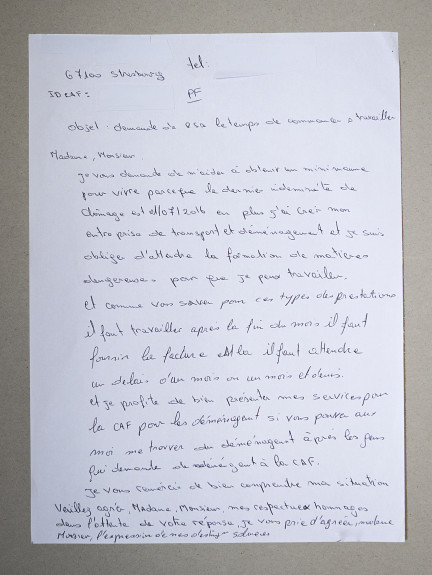 67100 Strasbourg tel:
ID CAF:
PF
Objet : demande de RSA le temps de commencer a travailler
Madame, Monsieur
Je vous demande de m'aider à obtenir un minimume
pour vivre parceque le dernier indemnité de
chômage est 01/07/2016 en plus j'ai creér mon
entreprise de transport et déménagement et je suis
oblige d'attendre la formation de matières
dangereuses pour que je peux travailler.
et comme vous savez pour ces types des prestations
il faut travailler après la fin du mois il faut
fournir la facture et la il faut attendre
un delais d'un mois ou un mois et demis.
et je profite de bien presenter mes services pour
la CAF pour les déménagent si vous pouvez aux
moi me trouver du déménagent à près les gens
qui demande de déménagent à la CAF.
Je vous remercis de bien comprendre ma situation
Veuillez agréer, Madame, Monsieur, mes respectueux hommages
dans l'attente de votre réponse, je vous prie d'agréer, madame
Monsieur, l'expression de mes